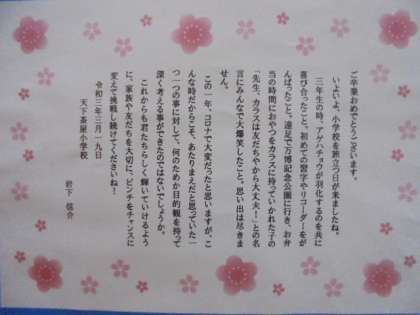 ご卒業おめでとうございます。
いよいよ、小学校を旅立つ日が来ましたね。
三年生の時、アゲハチョウが羽化するのを共に
喜び合ったこと。初めての習字やリコーダーをが
んばったこと。遠足で万博記念公園に行き、お弁
当の時間におやつをカラスに持っていかれた子の
「先生、カラスは友だちやから大丈夫！」との名
言にみんなで大爆笑したこと。思い出は尽きま
せん。
この一年、コロナで大変だったと思いますが、こ
んな時だからこそ、あたりまえだと思っていた一
つ一つの事に対して、何のためか目的観を持って
深く考える事ができたのではないでしょうか。
これからも君たちらしく輝いていけるよう
に、家族や友だちを大切に、ピンチをチャンスに
変えて挑戦し続けてくださいね！
令和三年三月一九日
天下茶屋小学校
岩下